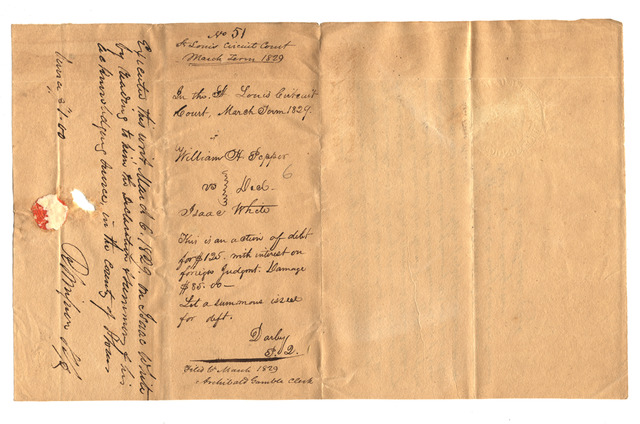 No 51
St Louis Circuit Court
March Term 1829
In the St Louis Circuit
Court, March Term 1829.
William H. Pepper
vs Decl.
Isaac White
This is an action of debt
for $125. with interest on
foreign Judgmt. Damage
$85.00—
Let a summons issue
for deft.
Darby
P. Q.
Filed 6 March 1829
Archibald Gamble Clerk
Executed this writ March 6. 1829. on Isaac White
by reading to him the declaration & summons & his
acknowledging service, in the County of
$1.00